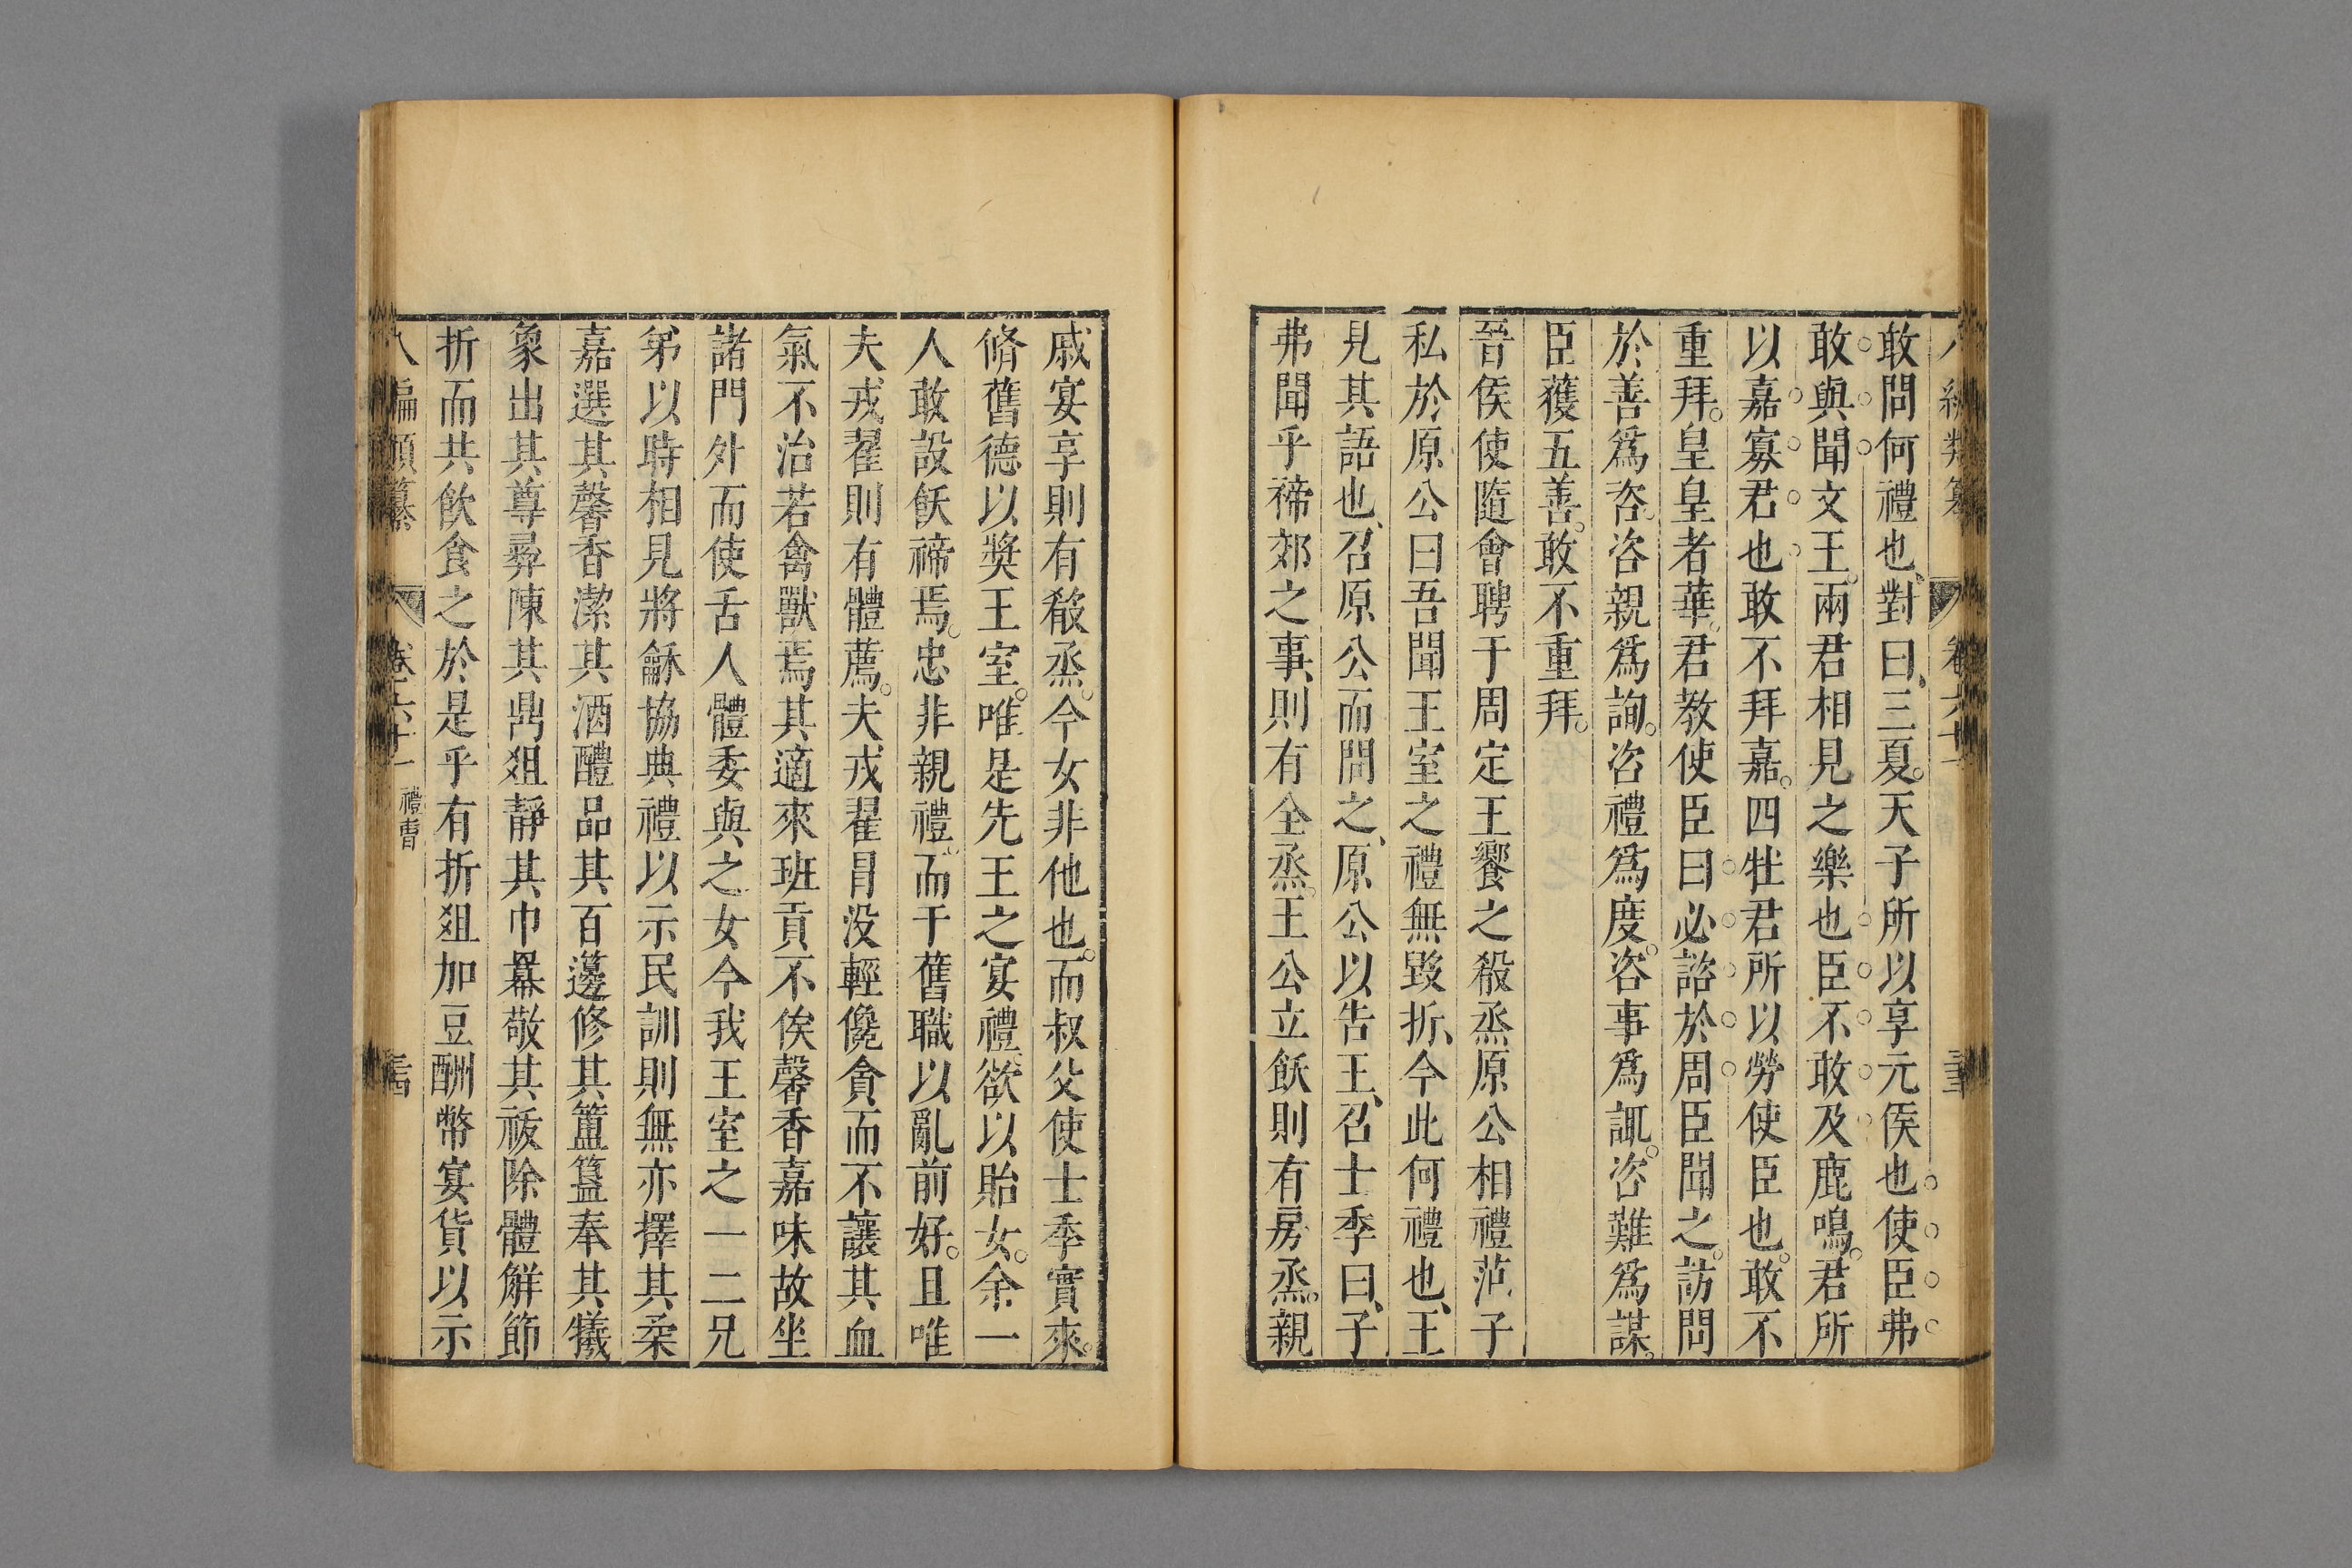 敢問何禮也、對曰、三夏。天子所以享元侯也使臣弗
敢與聞文王。兩君相見之樂也臣不敢及鹿鳴。君所
以嘉寡君也敢不拜嘉。四牡君所以勞使臣也。敢不
重拜。皇皇者華。君教使臣曰必諮於周臣聞之。訪問
於善爲咨。咨親爲詢。咨禮爲度。咨事爲諏。咨難爲謀。
臣獲五善。敢不重拜。
晉侯使隨會聘于周定王饗之殽烝原公相禮范子
私於原公曰吾聞王室之禮無毀折、今此何禮也、王
見其語也、召原公而問之、原公以告王、召士季曰、子
弗聞乎禘郊之事、則有全烝。王公立飫則有房烝。親
戚宴享則有殽烝。今女非他也。而叔父使士季實來。
脩舊德以奬王室。唯是先王之宴禮、欲以貽女。余一
人敢設飫禘焉。忠非親禮。而干舊職以亂前好。且唯
夫戎翟則有體薦。夫戎翟冒没輕儳貪而不讓其血
氣不治若禽獸焉其適來班貢不俟馨香嘉味故坐
諸門外而使舌人體委與之女今我王室之一二兄
弟以時相見將龢協典禮以示民訓則無亦擇其柔
嘉選其馨香潔其酒醴品其百籩修其簠簋奉其犧
象出其尊彞陳其鼎爼靜其巾羃敬其祓除體解節
折而共飲食之於是乎有折爼加豆酬幣宴貨以示
八編類纂 卷六十一 禮曹